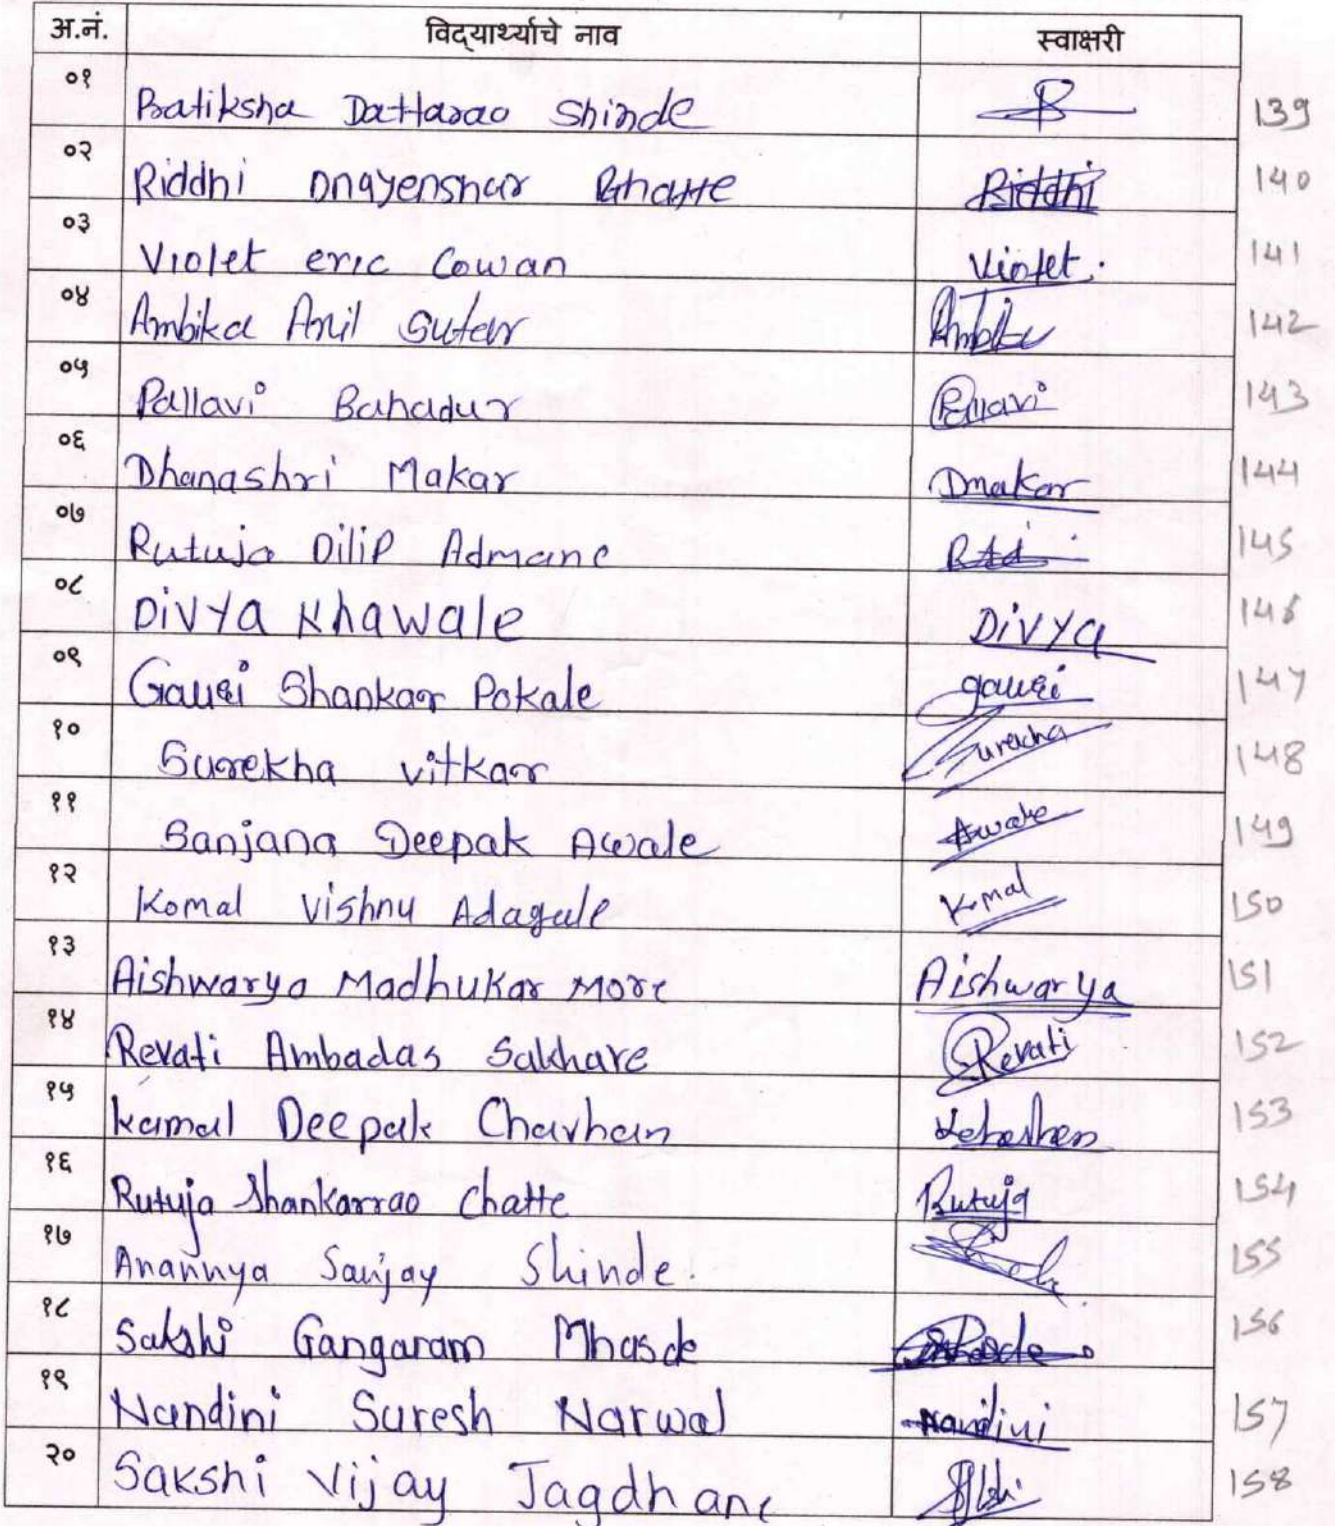 अ.नं. विद्यार्थ्याचे नाव स्वाक्षरी
०१ Pratiksha Dattarao Shinde 139
०२ Riddhi Dnayenshar Riddhi 140
०३ Violet eric Cowan Violet. 141
०४ Ambika Anil Sutar Ambika 142
०५ Pallavi Bahadur Pallavi 143
०६ Dhanashri Makar Dmakar 144
०७ Rutuja Dilip Admane 145
०८ Divya Khawale Divya 146
०९ Gauri Shankar Pokale gauri 147
१० Surekha vitkar 148
११ Sanjana Deepak Awale Awale 149
१२ Komal Vishnu Adagale Komal 150
१३ Aishwarya Madhukar More Aishwarya 151
१४ Revati Ambadas Sakhare Revati 152
१५ kamal Deepak Chavhan 153
१६ Rutuja Shankarrao Chatte Rutuja 154
१७ Anannya Sanjay Shinde. 155
१८ Sakshi Gangaram Mhasde 156
१९ Nandini Suresh Narwal Nandini 157
२० Sakshi Vijay Jagdhane 158